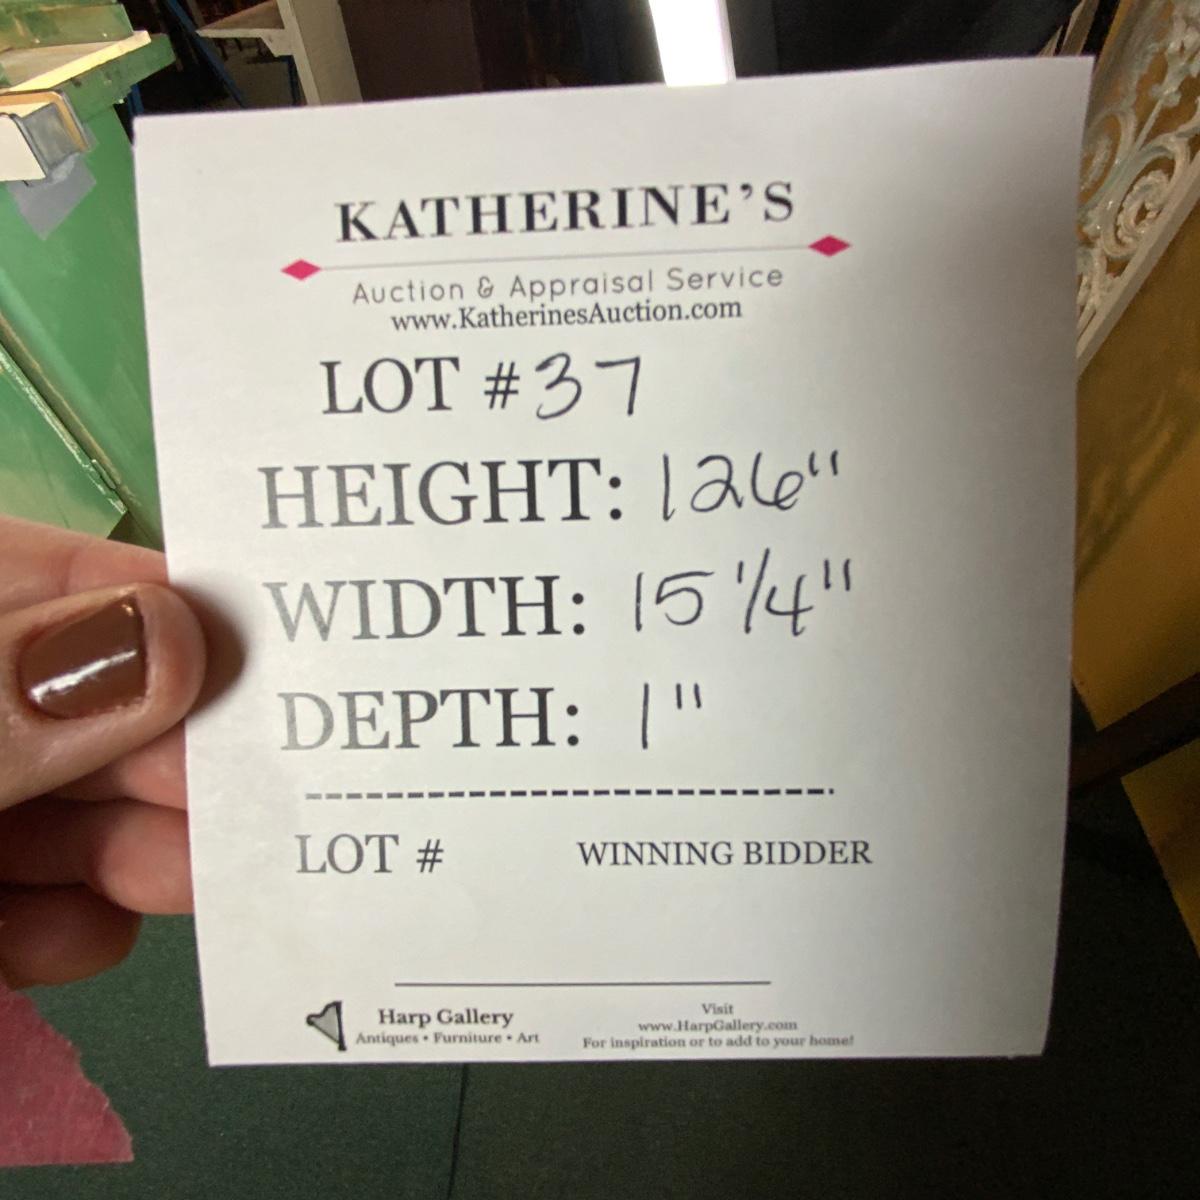 KATHERINE'S
Auction & Appraisal Service
www.KatherinesAuction.com
LOT #37
HEIGHT: 126"
WIDTH: 15 1/4"
DEPTH: 1"
LOT # WINNING BIDDER
Harp Gallery
Antiques • Furniture • Art
Visit
www.HarpGallery.com
For inspiration or to add to your home!